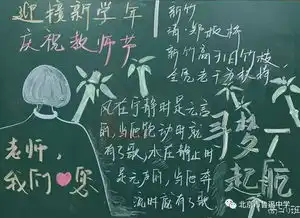 迎接新学年
庆祝教师节
新竹
清·郑板桥
新竹高于旧竹枝
全凭老干为扶持
风在宁静时是无言
的,当它跑动时就
有了歌,水在静止时
是无声的,当它奔
流时就有了歌
寻梦
起航
老师,
我们❤您
北京市鲁迅中学